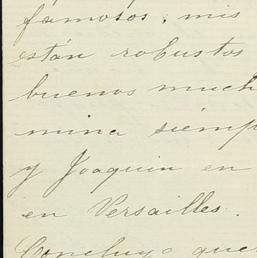 famosos; mis
están robustos
buenos much
mina siemp
y Joaquin en
en Versailles.
Concluyo que